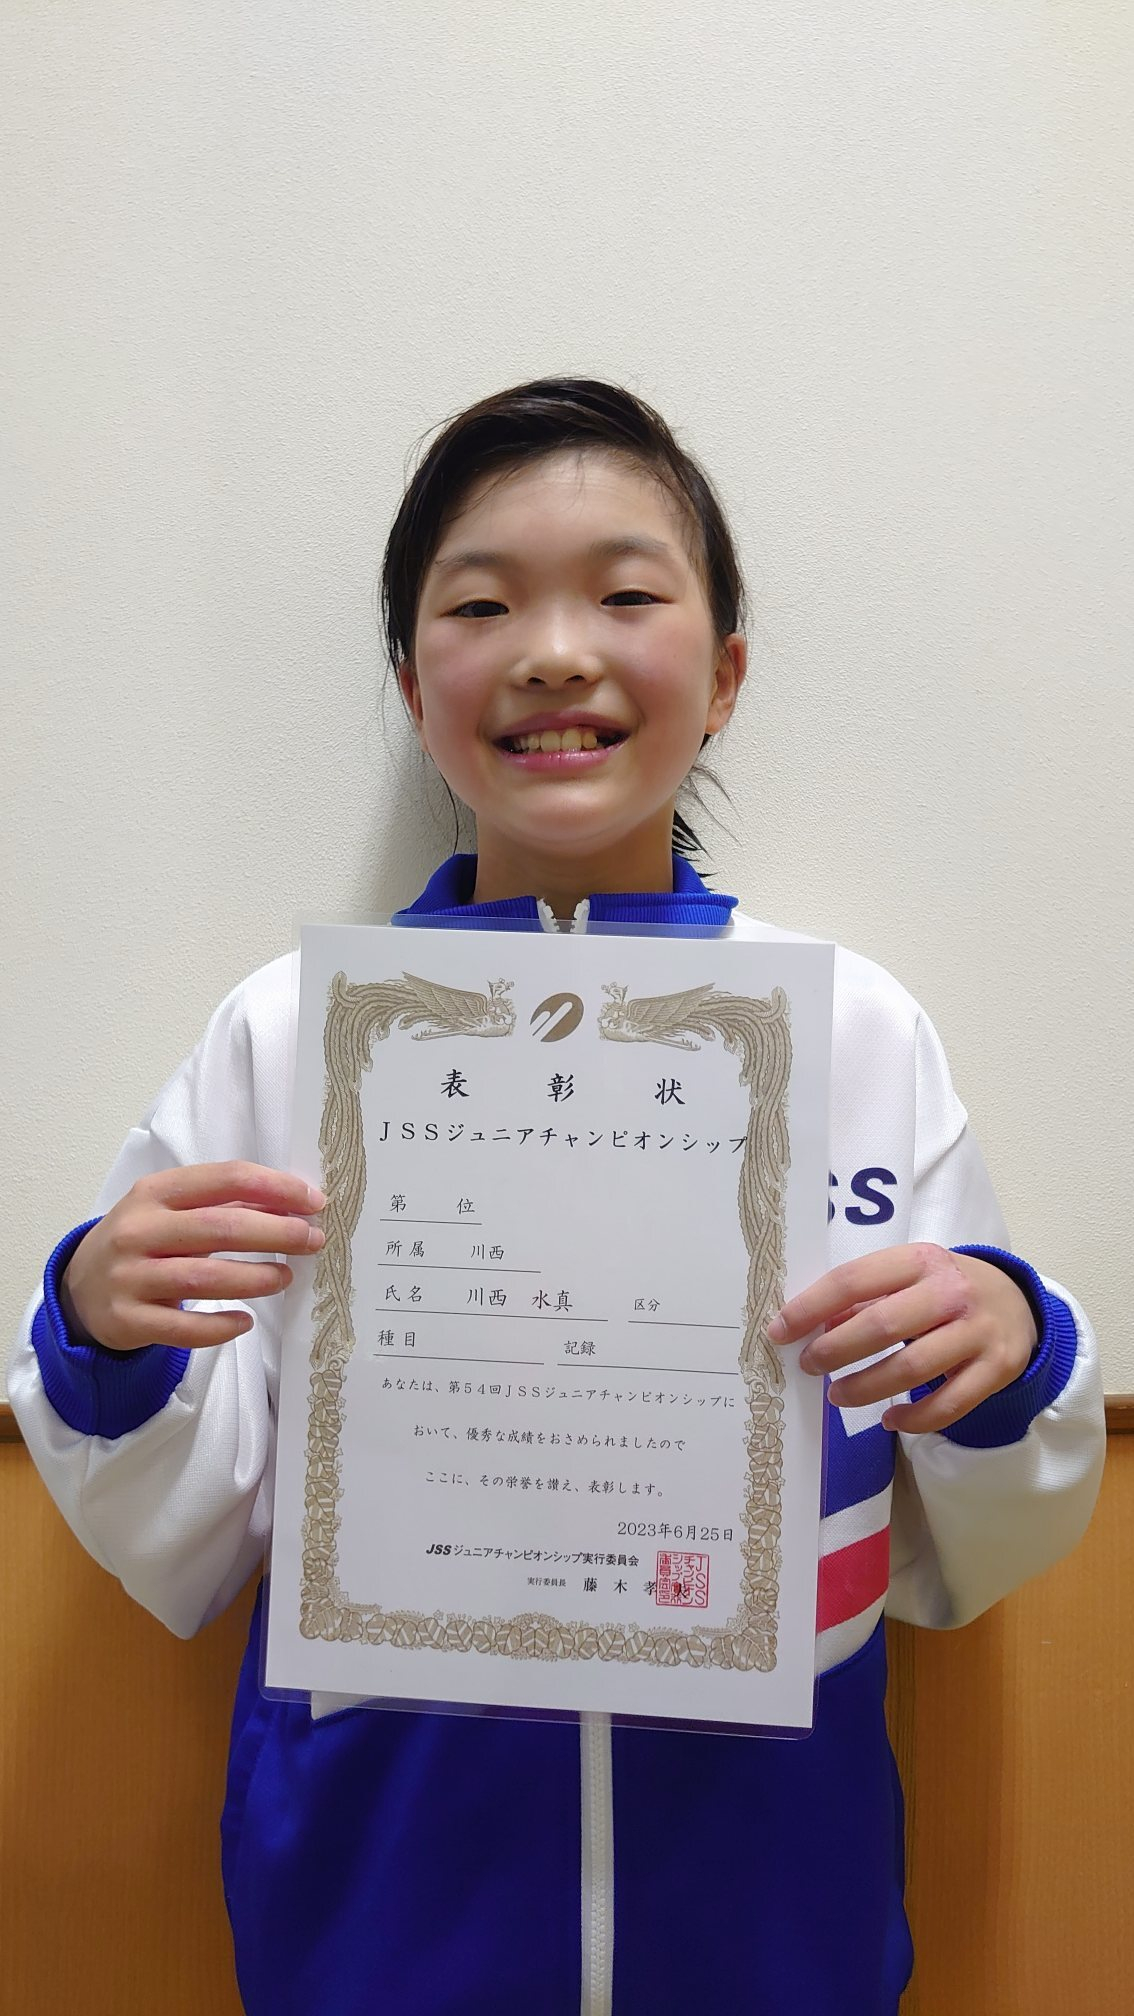 表 彰 状
JSSジュニアチャンピオンシップ
第 位
所属 川西
氏名 川西 水真 区分
種目 記録
あなたは、第54回JSSジュニアチャンピオンシップに
おいて、優秀な成績をおさめられましたので
ここに、その栄誉を讃え、表彰します。
2023年6月25日
JSSジュニアチャンピオンシップ実行委員会
実行委員長 藤 木 孝
SS